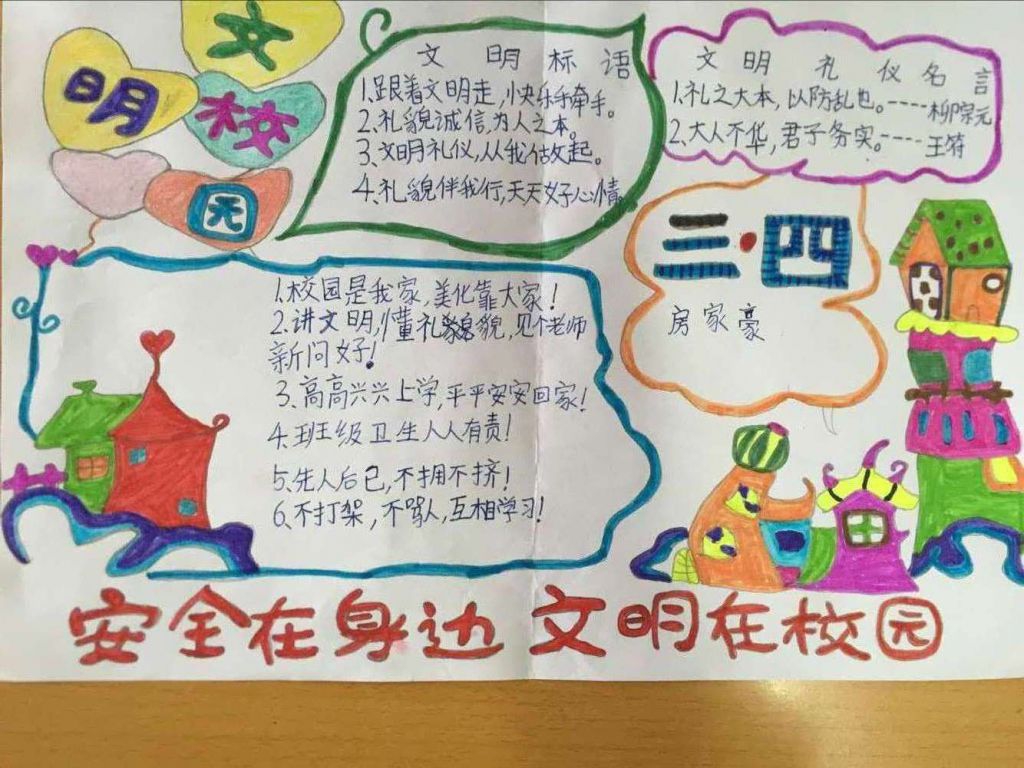 文明校园
文明标语
1.跟着文明走,小快乐手牵手。
2.礼貌诚信,为人之本。
3.文明礼仪,从我估故起。
4.礼貌伴我行,天天好心情。
文明礼仪名言
1.礼之大本,以防乱也。----柳宗元
2.大人不华,君子务实。----王符
三·四
房家豪
1.校园是我家,美化靠大家!
2.讲文明,懂礼貌貌,见个老师
新问好!
3.高高兴兴上学,平平安安回家!
4.班级卫生人人有责!
5.先人后己,不拥不挤!
6.不打架,不骂人,互相学习!
安全在身边 文明在校园